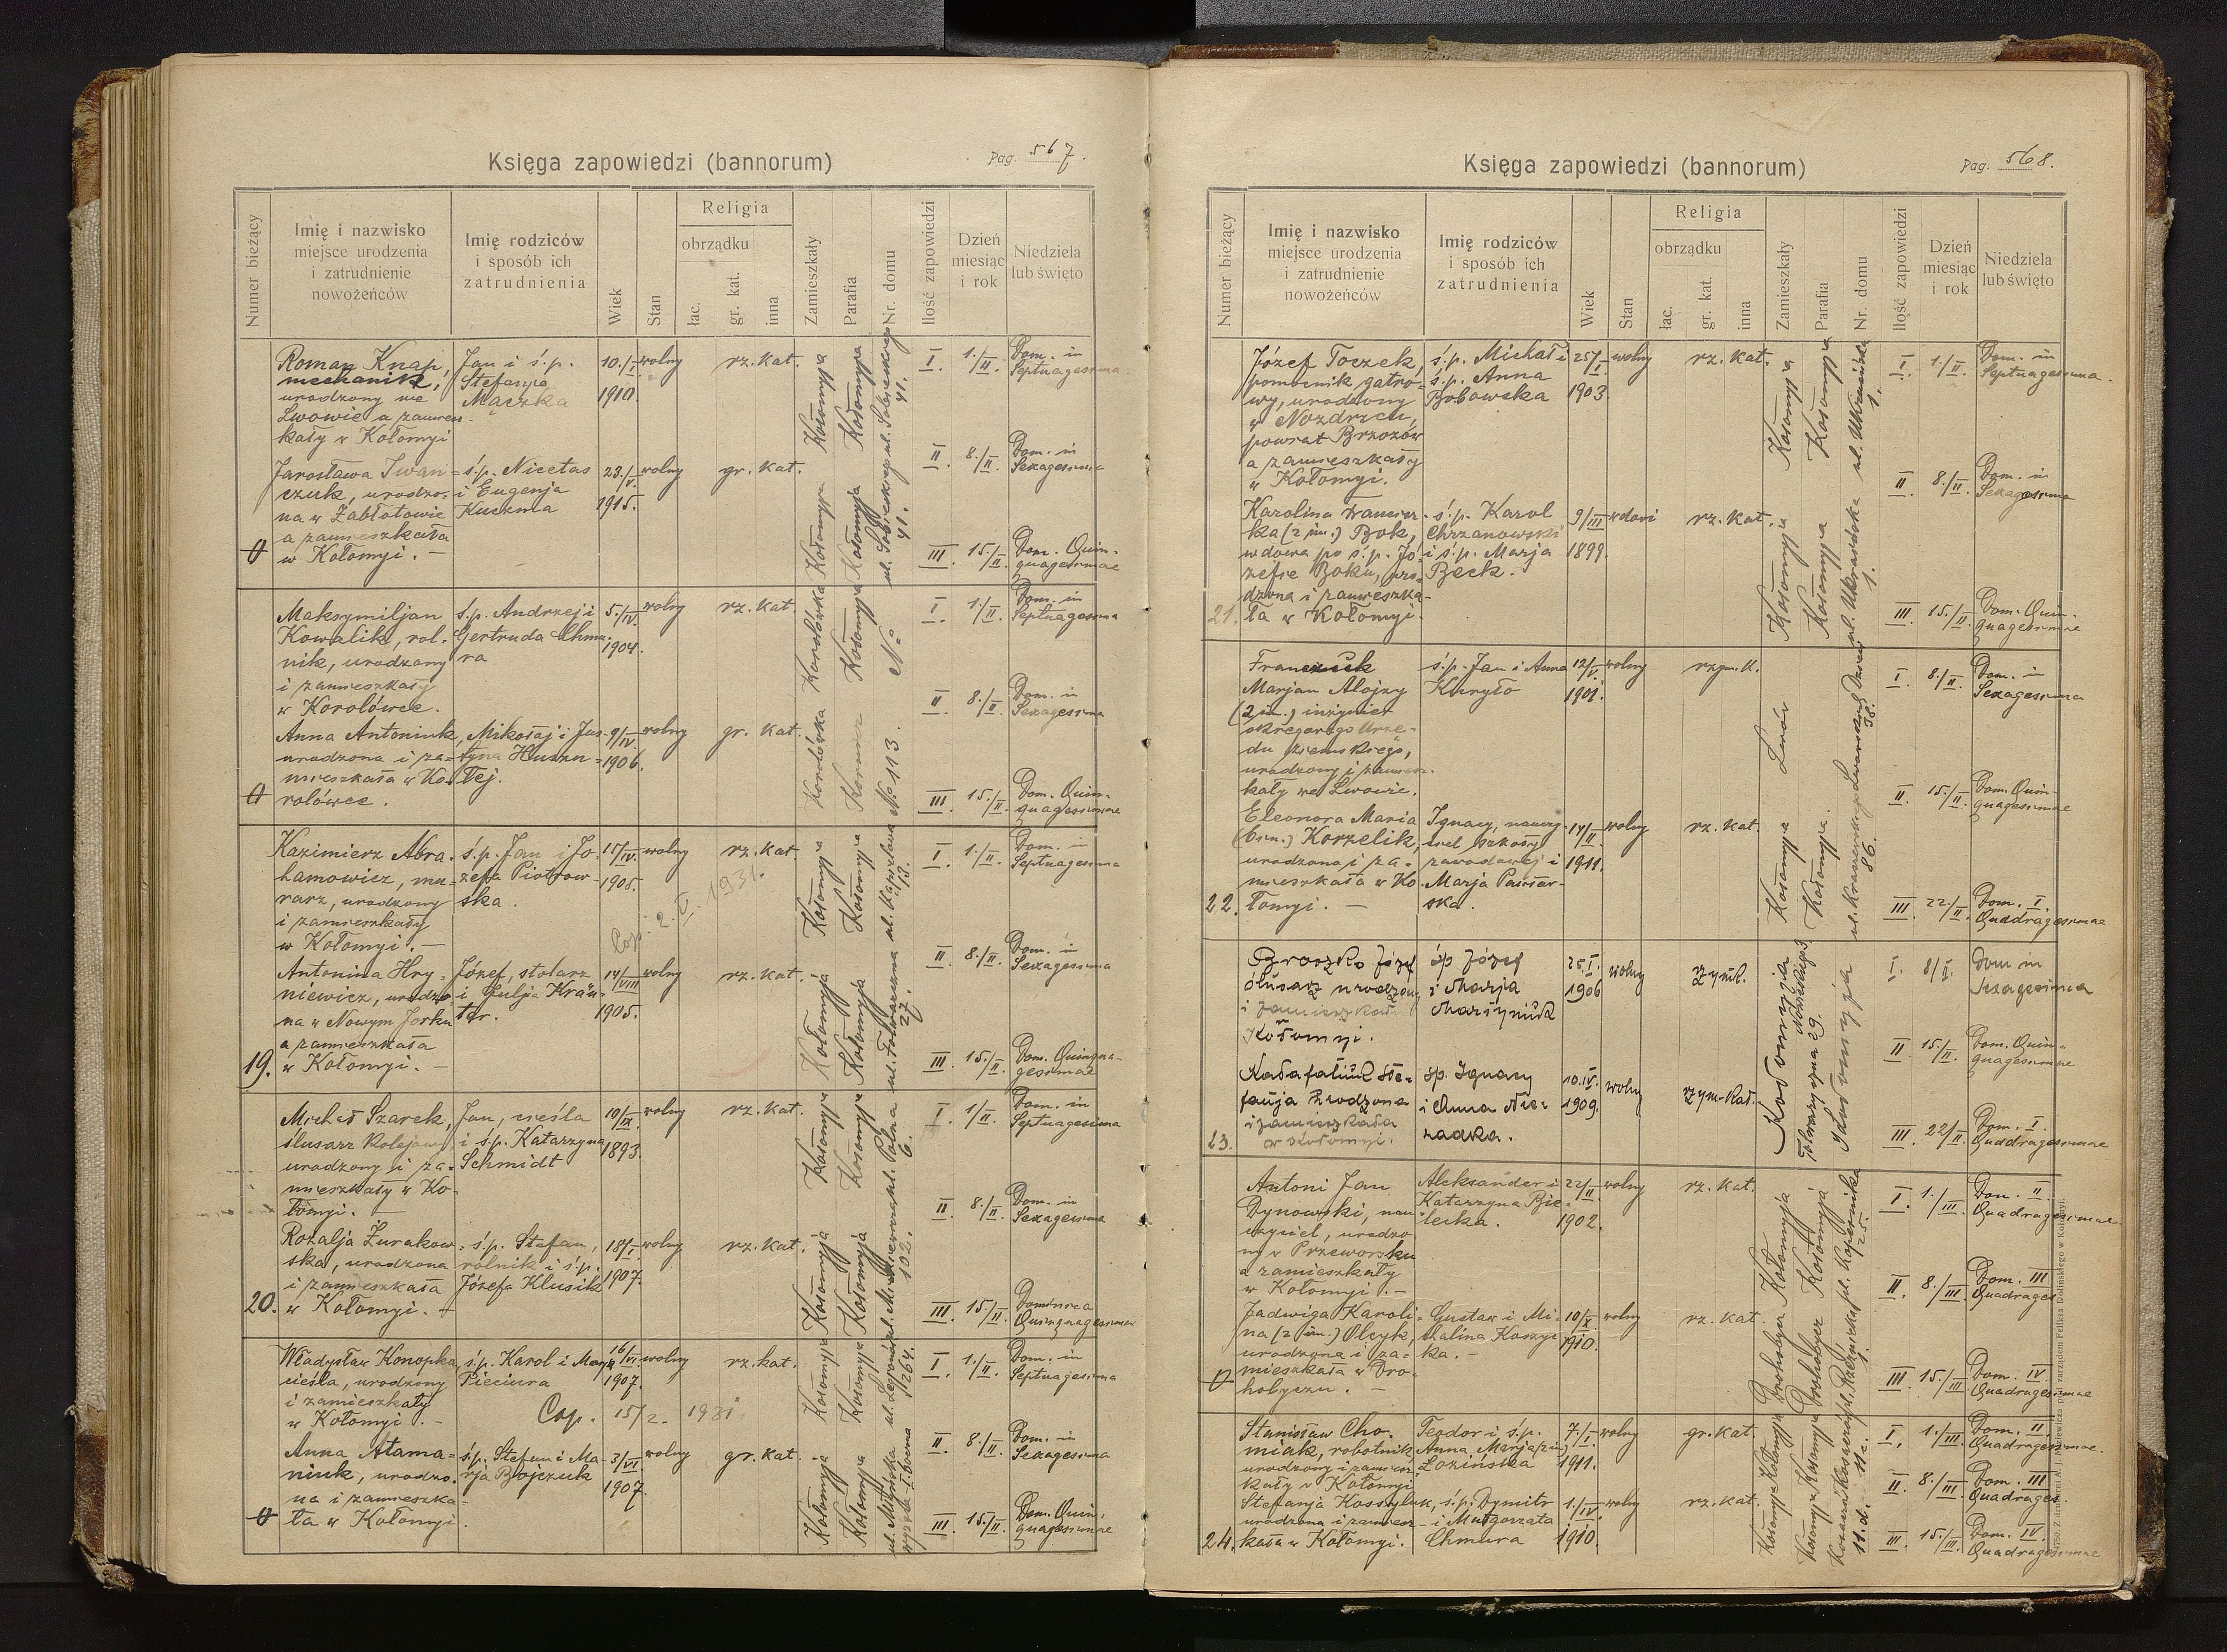 Księga zapowiedzi (bannorum)
Pag. 567.
Numer bieżący
Imię i nazwisko
miejsce urodzenia
i zatrudnienie
nowożeńców
Imię rodziców
i sposób ich
zatrudnienia
Wiek
Stan
Religia
obrządku
łac.
gr. kat.
inna
Zamieszkały
Parafia
Nr. domu
Ilość zapowiedzi
Dzień
miesiąc
i rok
Niedziela
lub święto
Roman Knap,
mechanik,
urodzony we
Lwowie a zamiesz-
kały w Kołomyi
Jan i ś.p.
Stefanja
Maczka
10./I.
1910
wolny
rz. kat.
Kołomyja
Kołomyja
ul. Sobieskiego
41.
I. 1./II. Dom. in
Septuagesima
Jarosława Iwan-
czuk, urodzo-
na w Zabłotowie
a zamieszkała
w Kołomyi. —
ś.p. Nicetas
i Eugenja
Kuczma
23./V.
1915.
wolny
gr. kat.
Kołomyja
Kołomyja
ul. Sobieskiego
41.
II. 8./II. Dom. in
Sexagesima
III. 15./II. Dom. Quin-
quagesimae
Maksymiljan
Kowalik, rol-
nik, urodzony
i zamieszkały
w Korolówce.
ś.p. Andrzej i
Gertruda Chmu-
ra
5./IV.
1904.
wolny
rz. kat.
Korolówka
Kołomyja
No
I. 1./II. Dom. in
Septuagesima
Anna Antoniuk,
urodzona i za-
mieszkała w Ko-
rolówce.
Mikołaj i Jus-
tyna Huszu-
łej.
9/IV.
1906.
wolny
gr. kat.
Korolówka
No 113.
II. 8./II. Dom. in
Sexagesima
III. 15./II. Dom. Quin-
quagesimae
Kazimierz Abra-
hamowicz, mu-
rarz, urodzony
i zamieszkały
w Kołomyi. —
ś.p. Jan i Jó-
zefa Piotrow-
ska.
15/IV.
1905.
wolny
rz. kat.
Cop. 2. V. 1931.
Kołomyja
Kołomyja
13.
I. 1./II. Dom. in
Septuagesima
19.
Antonina Hry-
niewicz, urodzo-
na w Nowym Jorku
a zamieszkała
w Kołomyi. —
Józef, stolarz
i Julja Kräu-
ter.
14/VIII
1905.
wolny
rz. kat.
Kołomyja
Kołomyja
27.
II. 8./II. Dom. in
Sexagesima
III. 15./II. Dom. Quinqua-
gesimae
Michał Szarek,
ślusarz kolejowy
urodzony i za-
mieszkały w Ko-
łomyi. —
Jan, cieśla
i ś.p. Katarzyna
Schmidt
19/IX.
1893.
wolny
rz. kat.
Kołomyja
Kołomyja
ul. Polna
6.
I. 1/II. Dom. in
Septuagesima
20.
Rozalja Żurakow-
ska, urodzona
i zamieszkała
w Kołomyi. —
ś.p. Stefan,
rolnik i ś.p.
Józefa Klusik
18/I.
1907.
wolny
rz. kat.
Kołomyja
Kołomyja
102.
II. 8./II. Dom. in
Sexagesima
III. 15./II. Dominica
Quinquagesimae
Władysław Konopka
cieśla, urodzony
i zamieszkały
w Kołomyi. —
ś.p. Karol i Marja
Pieciura
16/VI.
1907.
wolny
rz. kat.
Cop. 15/2. 1931
Kołomyja
Kołomyja
ul. Legionów
264.
I. 1./II. Dom. in
Septuagesima
Anna Atama-
niuk, urodzo-
na i zamieszka-
ła w Kołomyi.
ś.p. Stefan i Ma-
rja Bojczuk
3/VI.
1907.
wolny
gr. kat.
Kołomyja
Kołomyja
II. 8./II. Dom. in
Sexagesima
III. 15./II. Dom. Quin-
quagesimae
Księga zapowiedzi (bannorum)
Pag. 568.
Numer bieżący
Imię i nazwisko
miejsce urodzenia
i zatrudnienie
nowożeńców
Imię rodziców
i sposób ich
zatrudnienia
Wiek
Stan
Religia
obrządku
łac.
gr. kat.
inna
Zamieszkały
Parafia
Nr. domu
Ilość zapowiedzi
Dzień
miesiąc
i rok
Niedziela
lub święto
Józef Toczek,
pomocnik gatro-
wy, urodzony
w Nozdrzcu,
powiat Brzozów
a zamieszkały
w Kołomyi.
ś.p. Michał i
ś.p. Anna
Bobowska
25/I.
1903.
wolny
rz. kat.
Kołomyja
Kołomyja
ul. Ukraińska
1.
I. 1./II. Dom. in
Septuagesima.
II. 8./II. Dom. in
Sexagesima
21.
Karolina Francisz-
ka (2 im.) Bok,
wdowa po ś.p. Jó-
zefie Boku, uro-
dzona i zamieszka-
ła w Kołomyi.
ś.p. Karol
Chrzanowski
i ś.p. Marja
Beck.
9/III
1899.
rz. kat.
Kołomyja
Kołomyja
ul. Ukraińska
1.
III. 15./II. Dom. Quin-
quagesimae
Marjan Alojzy
(2 im.) inżynier
okręgowego Urzę-
du ziemskiego,
urodzony i zamiesz-
kały we Lwowie.
ś.p. Jan i Anna
Kuryło
12/V.
1901.
wolny
rzym. k.
Lwów
38.
I. 8./II. Dom. in
Sexagesima
22.
Eleonora Maria
(2 im.) Korzelik,
urodzona i za-
mieszkała w Ko-
łomyi. —
Ignacy, nauczy-
ciel szkoły
zawodowej i
Marja
14/II.
1911.
wolny
rz. kat.
Kołomyja
Kołomyja.
ul. Kraszewskiego
86.
II. 15./II. Dom. Quin-
quagesimae
III. 22./II. Dom. I.
Quadragesimae
23.
Broszko Józef
ślusarz urodzony
i zamieszkał.
Kołomyi.
śp Józef
i Marja
Martyniuk
25.I.
1906
wolny
rzymk.
Kołomyja
29.
Kołomyja
I. 8/II. Dom in
Sexagesima
Kałafatiuk Ste-
fanja urodzona
i zamieszkała
w Kołomyi.
śp. Ignacy
i Anna Nie-
radka.
10.IV.
1909.
wolny
rzym-kat.
II. 15./II. Dom. Quin-
quagesimae
III. 22/II. Dom. I.
Quadragesimae
Antoni Jan
Dynowski, nau-
czyciel, urodzo-
ny w Przeworsku
a zamieszkały
w Kołomyi. —
Aleksander i
Katarzyna Bie-
lecka.
22/II.
1902.
wolny
rz. kat.
Kołomyja
Kołomyja
ul. Kopernika
25.
I. 1./III. Dom. II.
Quadragesimae
II. 8./III. Dom. III
Quadrages
Jadwiga Karoli-
na (2 im.) Olcyk,
urodzona i za-
mieszkała w Dro-
hobyczu. —
Gustaw i Mi-
chalina Koszyc-
ka. —
10/X
1910.
wolny
rz. kat.
Drohobycz
Drohobycz
1.
III. 15./III Dom. IV.
Quadragesimae
Stanisław Cho-
miak, robotnik
urodzony i zamiesz-
kały w Kołomyi
Teodor i ś.p.
Anna Marja (2 im.)
Łozińska
7./I.
1911.
wolny
gr. kat.
Kołomyja
Kołomyja
11c.
I. 1./III. Dom. II.
Quadragesimae.
24.
Stefanja Kossyluk,
urodzona i zamiesz-
kała w Kołomyi.
ś.p. Dymitr
i Małgorzata
Chmura
1./IV.
1910.
wolny
rz. kat.
Kołomyja
Kołomyja
11.d.
II. 8./III. Dom. III
Quadrages.
III. 15./III. Dom. IV.
Quadragesimae